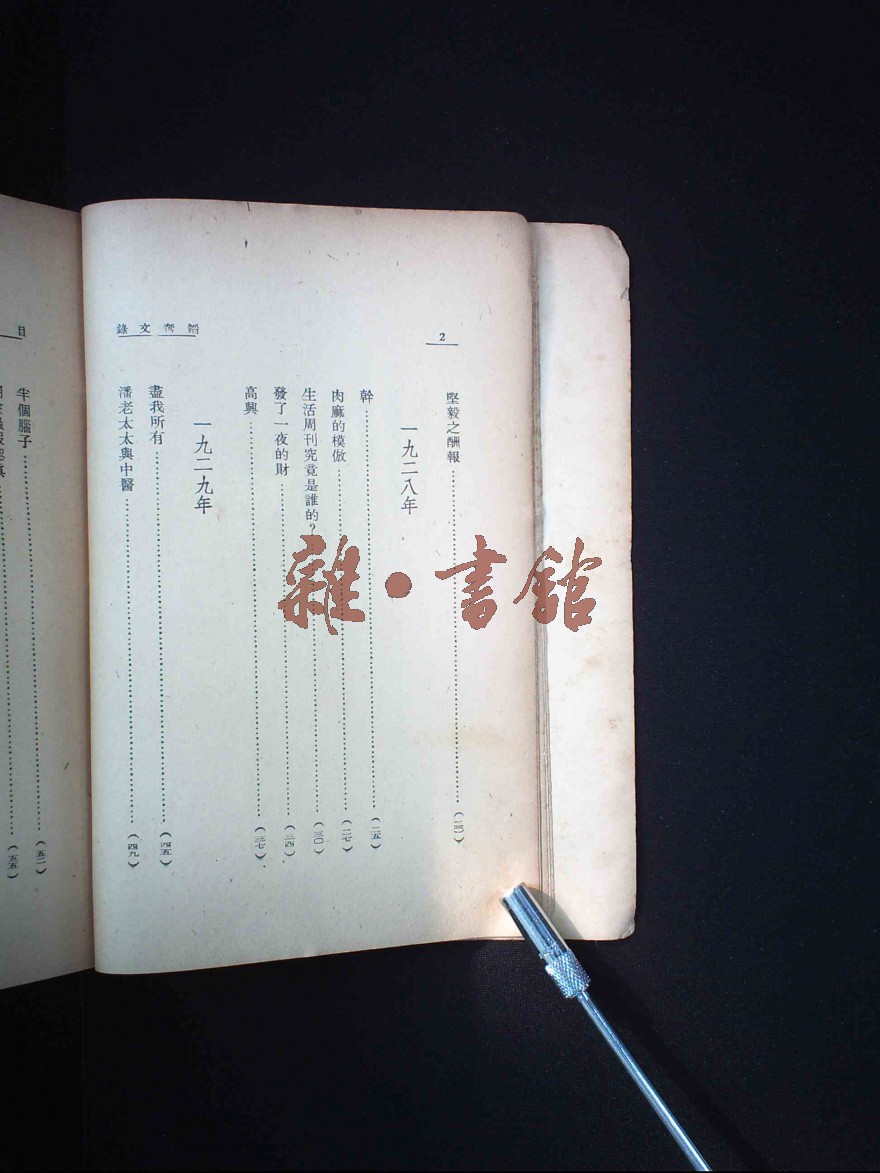 韜奮文錄
2
堅毅之酬報（二三）
一九二八年
幹（二五）
肉麻的模倣（二七）
生活周刊究竟是誰的？（三〇）
發了一夜的財（三四）
高興（三七）
一九二九年
盡我所有（四五）
潘老太太與中醫（四九）
目
半個腦子（五二）
（五五）
雜·書館